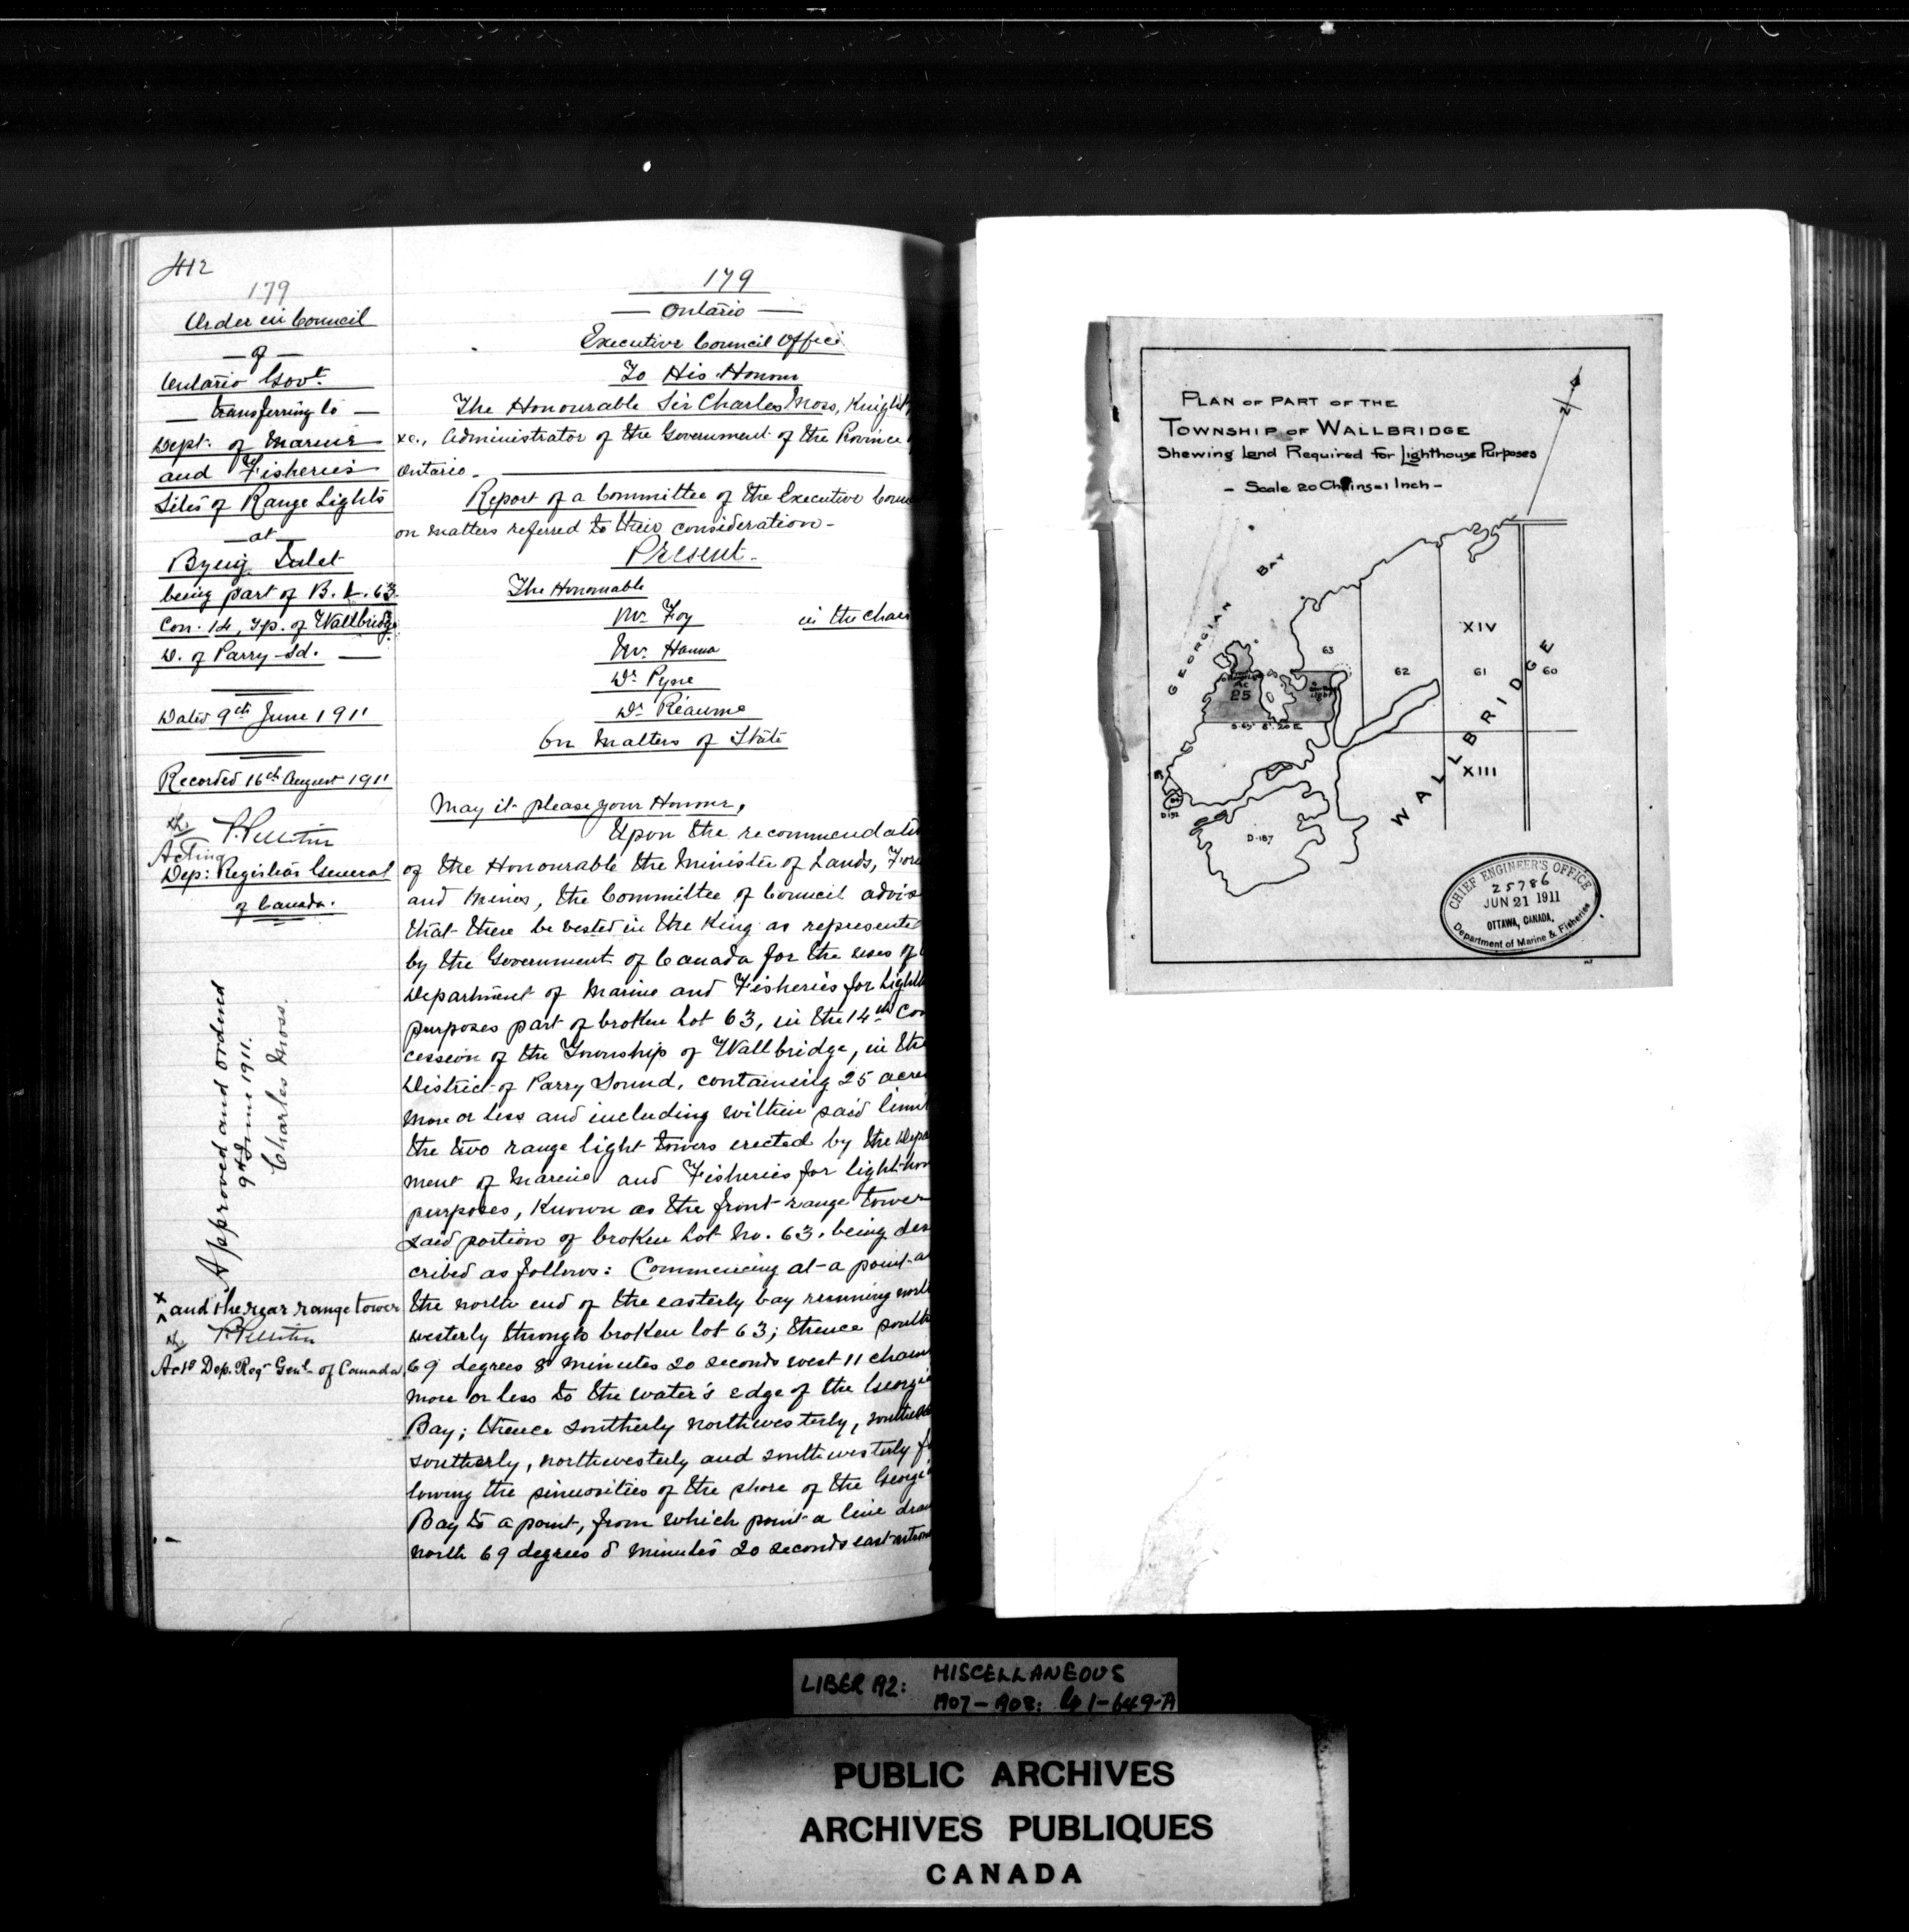 412
179
Order in Council
— of —
Ontario Govt.
— transferring to —
Dept. of Marine
and Fisheries
Sites of Range Lights
— at —
Byng Inlet
being part of B. L. 63
Con. 14, Tp. of Wallbridge
D. of Parry Sd. —
Dated 9th June 1911
Recorded 16th August 1911
P. Pelletier
Acting
Dep: Registrar General
of Canada.
Approved and ordered
9th June 1911.
Charles Moss.
x and the rear range tower
P. Pelletier
Actg Dep. Regr Genl of Canada
179
— Ontario —
Executive Council Office
To His Honour
The Honourable Sir Charles Moss, Knight
&c., Administrator of the Government of the Province
Ontario.
Report of a Committee of the Executive Coun
on matters referred to their consideration-
Present-
The Honourable
Mr. Foy in the chair
Mr. Hanna
Dr. Pyne
Dr. Réaume
On Matters of State
May it please your Honour,
Upon the recommendati
of the Honourable the Minister of Lands, Fore
and Mines, the Committee of Council advis
that there be vested in the King as represented
by the Government of Canada for the uses of
Department of Marine and Fisheries for Lighth
purposes part of broken Lot 63, in the 14th Con
cession of the Township of Wallbridge, in the
District of Parry Sound, containing 25 acres
more or less and including within said limi
the two range light towers erected by the Depa
ment of Marine and Fisheries for light-hou
purposes, known as the front range tower
said portion of broken Lot No. 63, being des
cribed as follows: Commencing at a point a
the north end of the easterly bay running north
westerly through broken lot 63; thence south
69 degrees 8 minutes 20 seconds west 11 chains
more or less to the water's edge of the Georgia
Bay; thence southerly northwesterly, southea
southerly, northwesterly and southwesterly fo
lowing the sinuosities of the shore of the Georgi
Bay to a point, from which point a line draw
north 69 degrees 8 minutes 20 seconds east astron
PLAN OF PART OF THE
TOWNSHIP OF WALLBRIDGE
Shewing Land Required for Lighthouse Purposes
- Scale 20 Chains=1 Inch -
N
GEORGIAN BAY
XIV
63
62
61
60
Ac
25
Light
WALLBRIDGE
XIII
D-192
D-187
CHIEF ENGINEER'S OFFICE
25786
JUN 21 1911
OTTAWA, CANADA.
Department of Marine & Fisheries
LIBER 192: MISCELLANEOUS
1907-1908:
PUBLIC ARCHIVES
ARCHIVES PUBLIQUES
CANADA